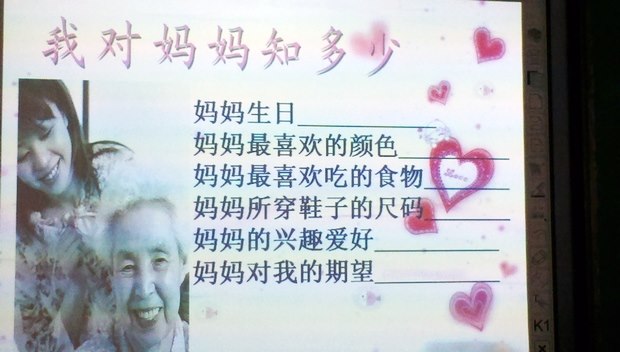 我对妈妈知多少
妈妈生日__________
妈妈最喜欢的颜色________
妈妈最喜欢吃的食物______
妈妈所穿鞋子的尺码______
妈妈的兴趣爱好_________
妈妈对我的期望_________
K1